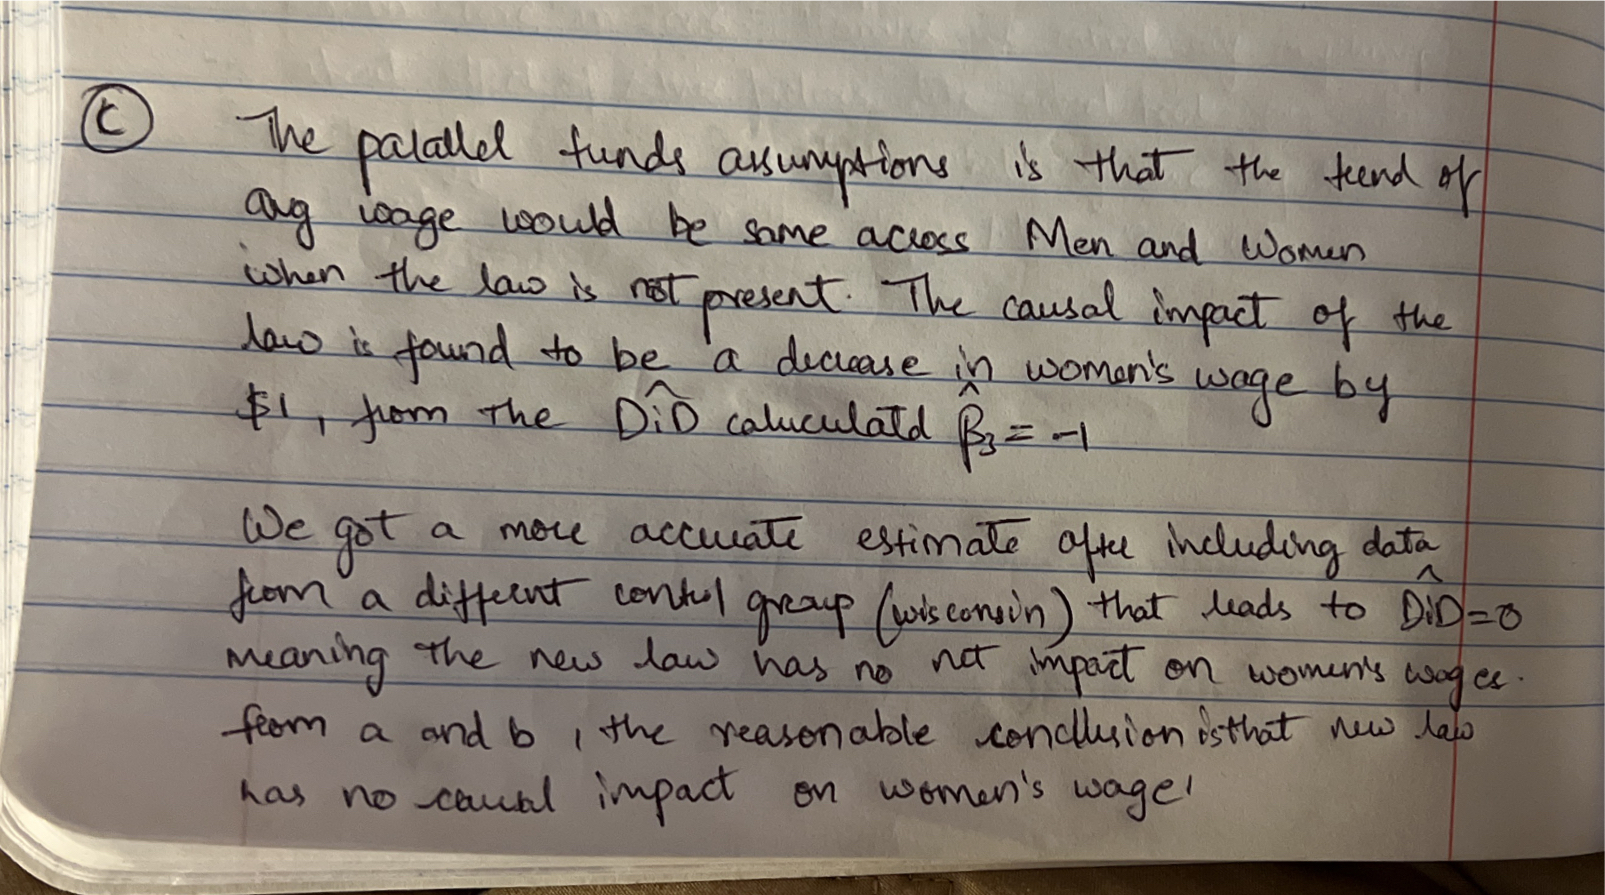 C The parallel trends assumptions is that the trend of
avg wage would be same across Men and Women
when the law is not present. The causal impact of the
law is found to be a decrease in women's wage by
$1, from the D̂iD caluculatd β̂₃ = -1
We got a more accurate estimate after including data
from a different control group (wisconsin) that leads to D̂iD = 0
meaning the new law has no net impact on women's wages.
from a and b, the reasonable conclusion is that new law
has no causal impact on women's wage.